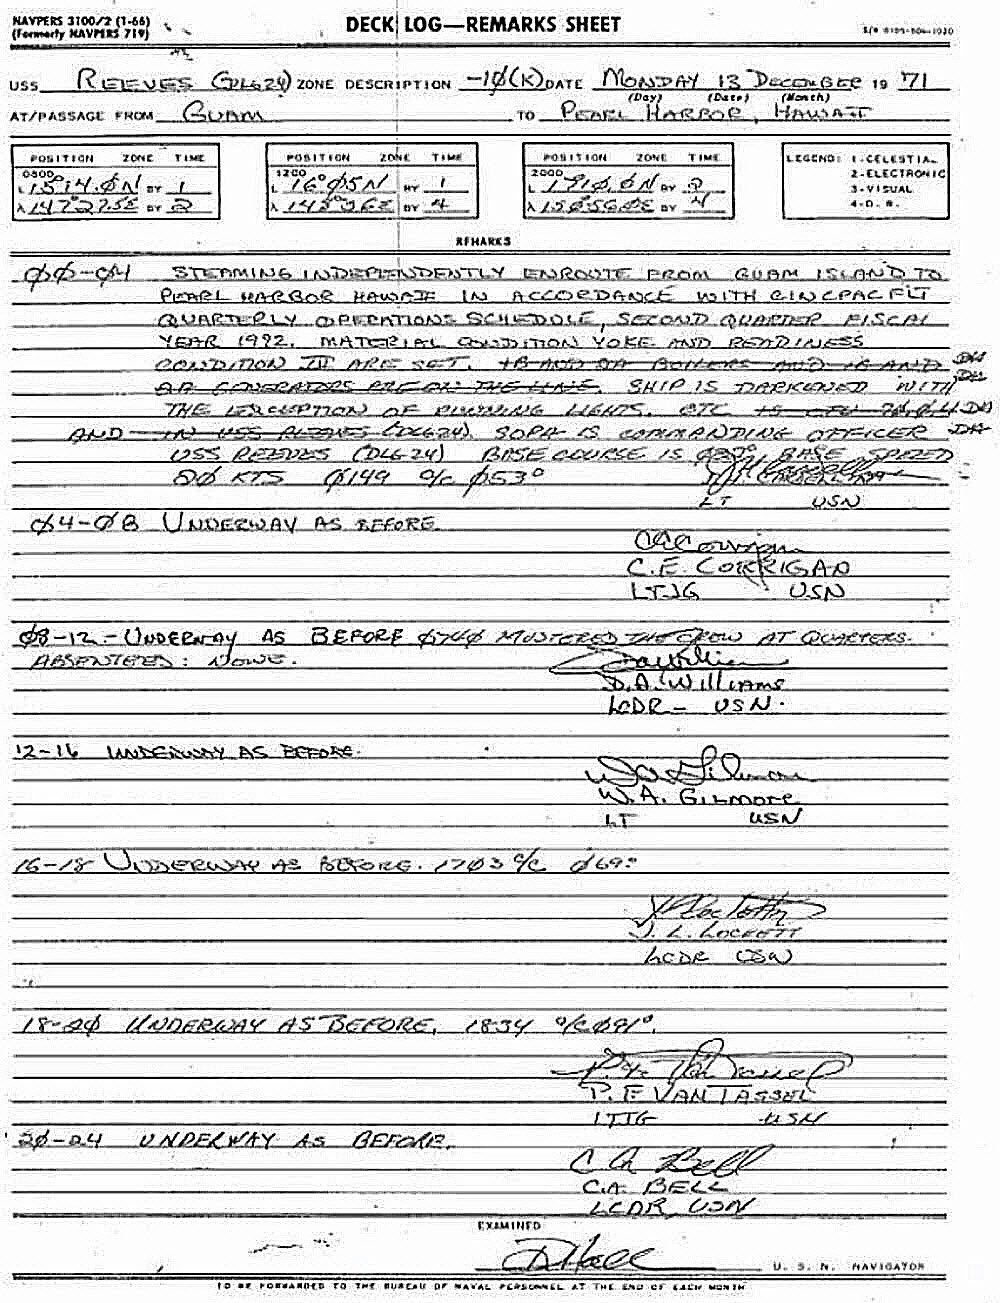 NAVPERS 3100/2 (1-66)
(Formerly NAVPERS 719)
DECK LOG—REMARKS SHEET
USS REEVES (DLG24) ZONE DESCRIPTION -1Ø(K) DATE MONDAY 13 DECEMBER 19 71
(Day) (Date) (Month)
AT/PASSAGE FROM GUAM TO PEARL HARBOR, HAWAII
POSITION ZONE TIME
0800
L 15°14.ØN BY 1
λ 147°27.5E BY 2
POSITION ZONE TIME
1200
L 16°Ø5N BY 1
BY 4
POSITION ZONE TIME
2000
L 17°1Ø.ØN BY 2
BY 4
LEGEND: 1-CELESTIAL
2-ELECTRONIC
3-VISUAL
4-D.R.
REMARKS
ØØ-Ø4 STEAMING INDEPENDENTLY ENROUTE FROM GUAM ISLAND TO
PEARL HARBOR HAWAII IN ACCORDANCE WITH CINCPACFLT
QUARTERLY OPERATIONS SCHEDULE, SECOND QUARTER FISCAL
YEAR 1972. MATERIAL CONDITION YOKE AND READINESS
CONDITION IV ARE SET. 1B AND 2A BOILERS AND 1B AND
2A GENERATORS ARE ON THE LINE. SHIP IS DARKENED WITH
THE EXCEPTION OF RUNNING LIGHTS.
AND IN USS REEVES (DLG24). SOPA IS COMMANDING OFFICER
USS REEVES (DLG-24) BASE COURSE IS BASE SPEED
2Ø KTS Ø149 C/C Ø53°
LT USN
Ø4-Ø8 UNDERWAY AS BEFORE.
C.E. CORRIGAN
LTJG USN
Ø8-12 - UNDERWAY AS BEFORE Ø74Ø MUSTERED THE CREW AT QUARTERS.
ABSENTEES: NONE.
D.A. WILLIAMS
LCDR - USN.
12-16 UNDERWAY AS BEFORE.
W.A. GILMORE
LT USN
16-18 UNDERWAY AS BEFORE. 17Ø3 C/C Ø69°
J. L. LOCKETT
LCDR USN
18-2Ø UNDERWAY AS BEFORE. 1834 C/C Ø91°.
P. F VAN TASSEL
LTJG USN
2Ø-24 UNDERWAY AS BEFORE.
C A Bell
C.A. BELL
LCDR, USN
EXAMINED
U. S. N. NAVIGATOR
TO BE FORWARDED TO THE BUREAU OF NAVAL PERSONNEL AT THE END OF EACH MONTH